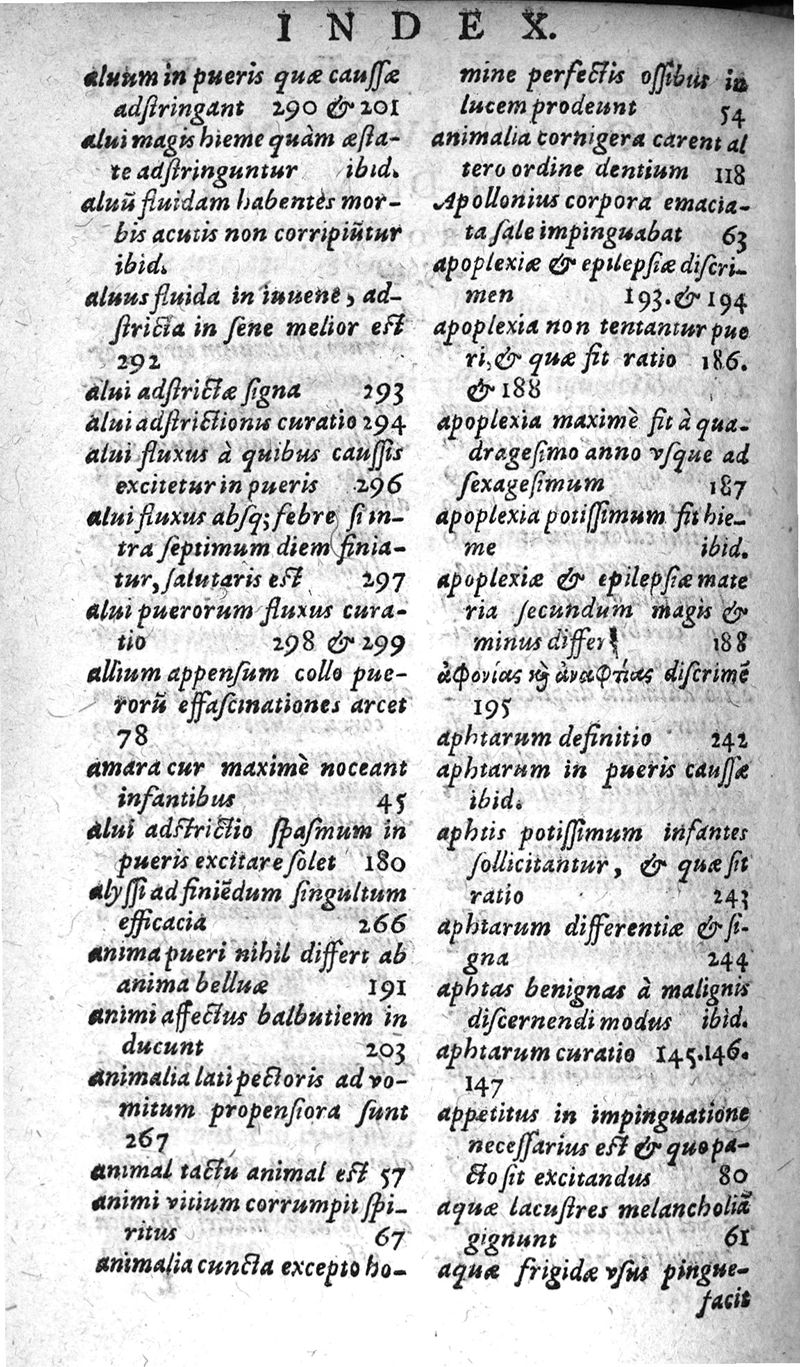 INDEX.
aluum in pueris quæ cauſſæ
adſtringant 290 & 201
alui magis hieme quàm æſta-
te adſtringuntur ibid.
aluũ fluidam habentes mor-
bis acutis non corripiũtur
ibid.
aluus fluida in iuuene, ad-
ſtricta in ſene melior eſt
292
alui adſtrictæ ſigna 293
alui adſtrictionis curatio 294
alui fluxus à quibus cauſſis
excitetur in pueris 296
alui fluxus abſq; febre ſi in-
tra ſeptimum diem finia-
tur, ſalutaris eſt 297
alui puerorum fluxus cura-
tio 298 & 299
allium appenſum collo pue-
rorũ effaſcinationes arcet
78
amara cur maximè noceant
infantibus 45
alui adſtrictio ſpaſmum in
pueris excitare ſolet 180
alyſſi ad finiẽdum ſingultum
efficacia 266
anima pueri nihil differt ab
anima belluæ 191
animi affectus balbutiem in
ducunt 203
animalia lati pectoris ad vo-
mitum propenſiora ſunt
267
animal tactu animal eſt 57
animi vitium corrumpit ſpi-
ritus 67
animalia cuncta excepto ho-
mine perfectis oſſibus in
lucem prodeunt 54
animalia cornigera carent al
tero ordine dentium 118
Apollonius corpora emacia-
ta ſale impinguabat 63
apoplexiæ & epilepſiæ diſcri-
men 193. & 194
apoplexia non tentantur pue
ri, & quæ ſit ratio 186.
& 188
apoplexia maximè fit à qua-
drageſimo anno vſque ad
ſexageſimum 187
apoplexia potiſſimum fit hie-
me ibid.
apoplexiæ & epilepſiæ mate
ria ſecundum magis &
minus differt 188
ἀφονίας καὶ ἀναφτίας diſcrimẽ
195
aphtarum definitio 242
aphtarum in pueris cauſſæ
ibid.
aphtis potiſſimum infantes
ſollicitantur, & quæ ſit
ratio 243
aphtarum differentiæ & ſi-
gna 244
aphtas benignas à malignis
diſcernendi modus ibid.
aphtarum curatio 145.146.
147
appetitus in impinguatione
neceſſarius eſt & quo pa-
cto ſit excitandus 80
aquæ lacuſtres melancholiã
gignunt 61
aquæ frigidæ vſus pingue-
facit